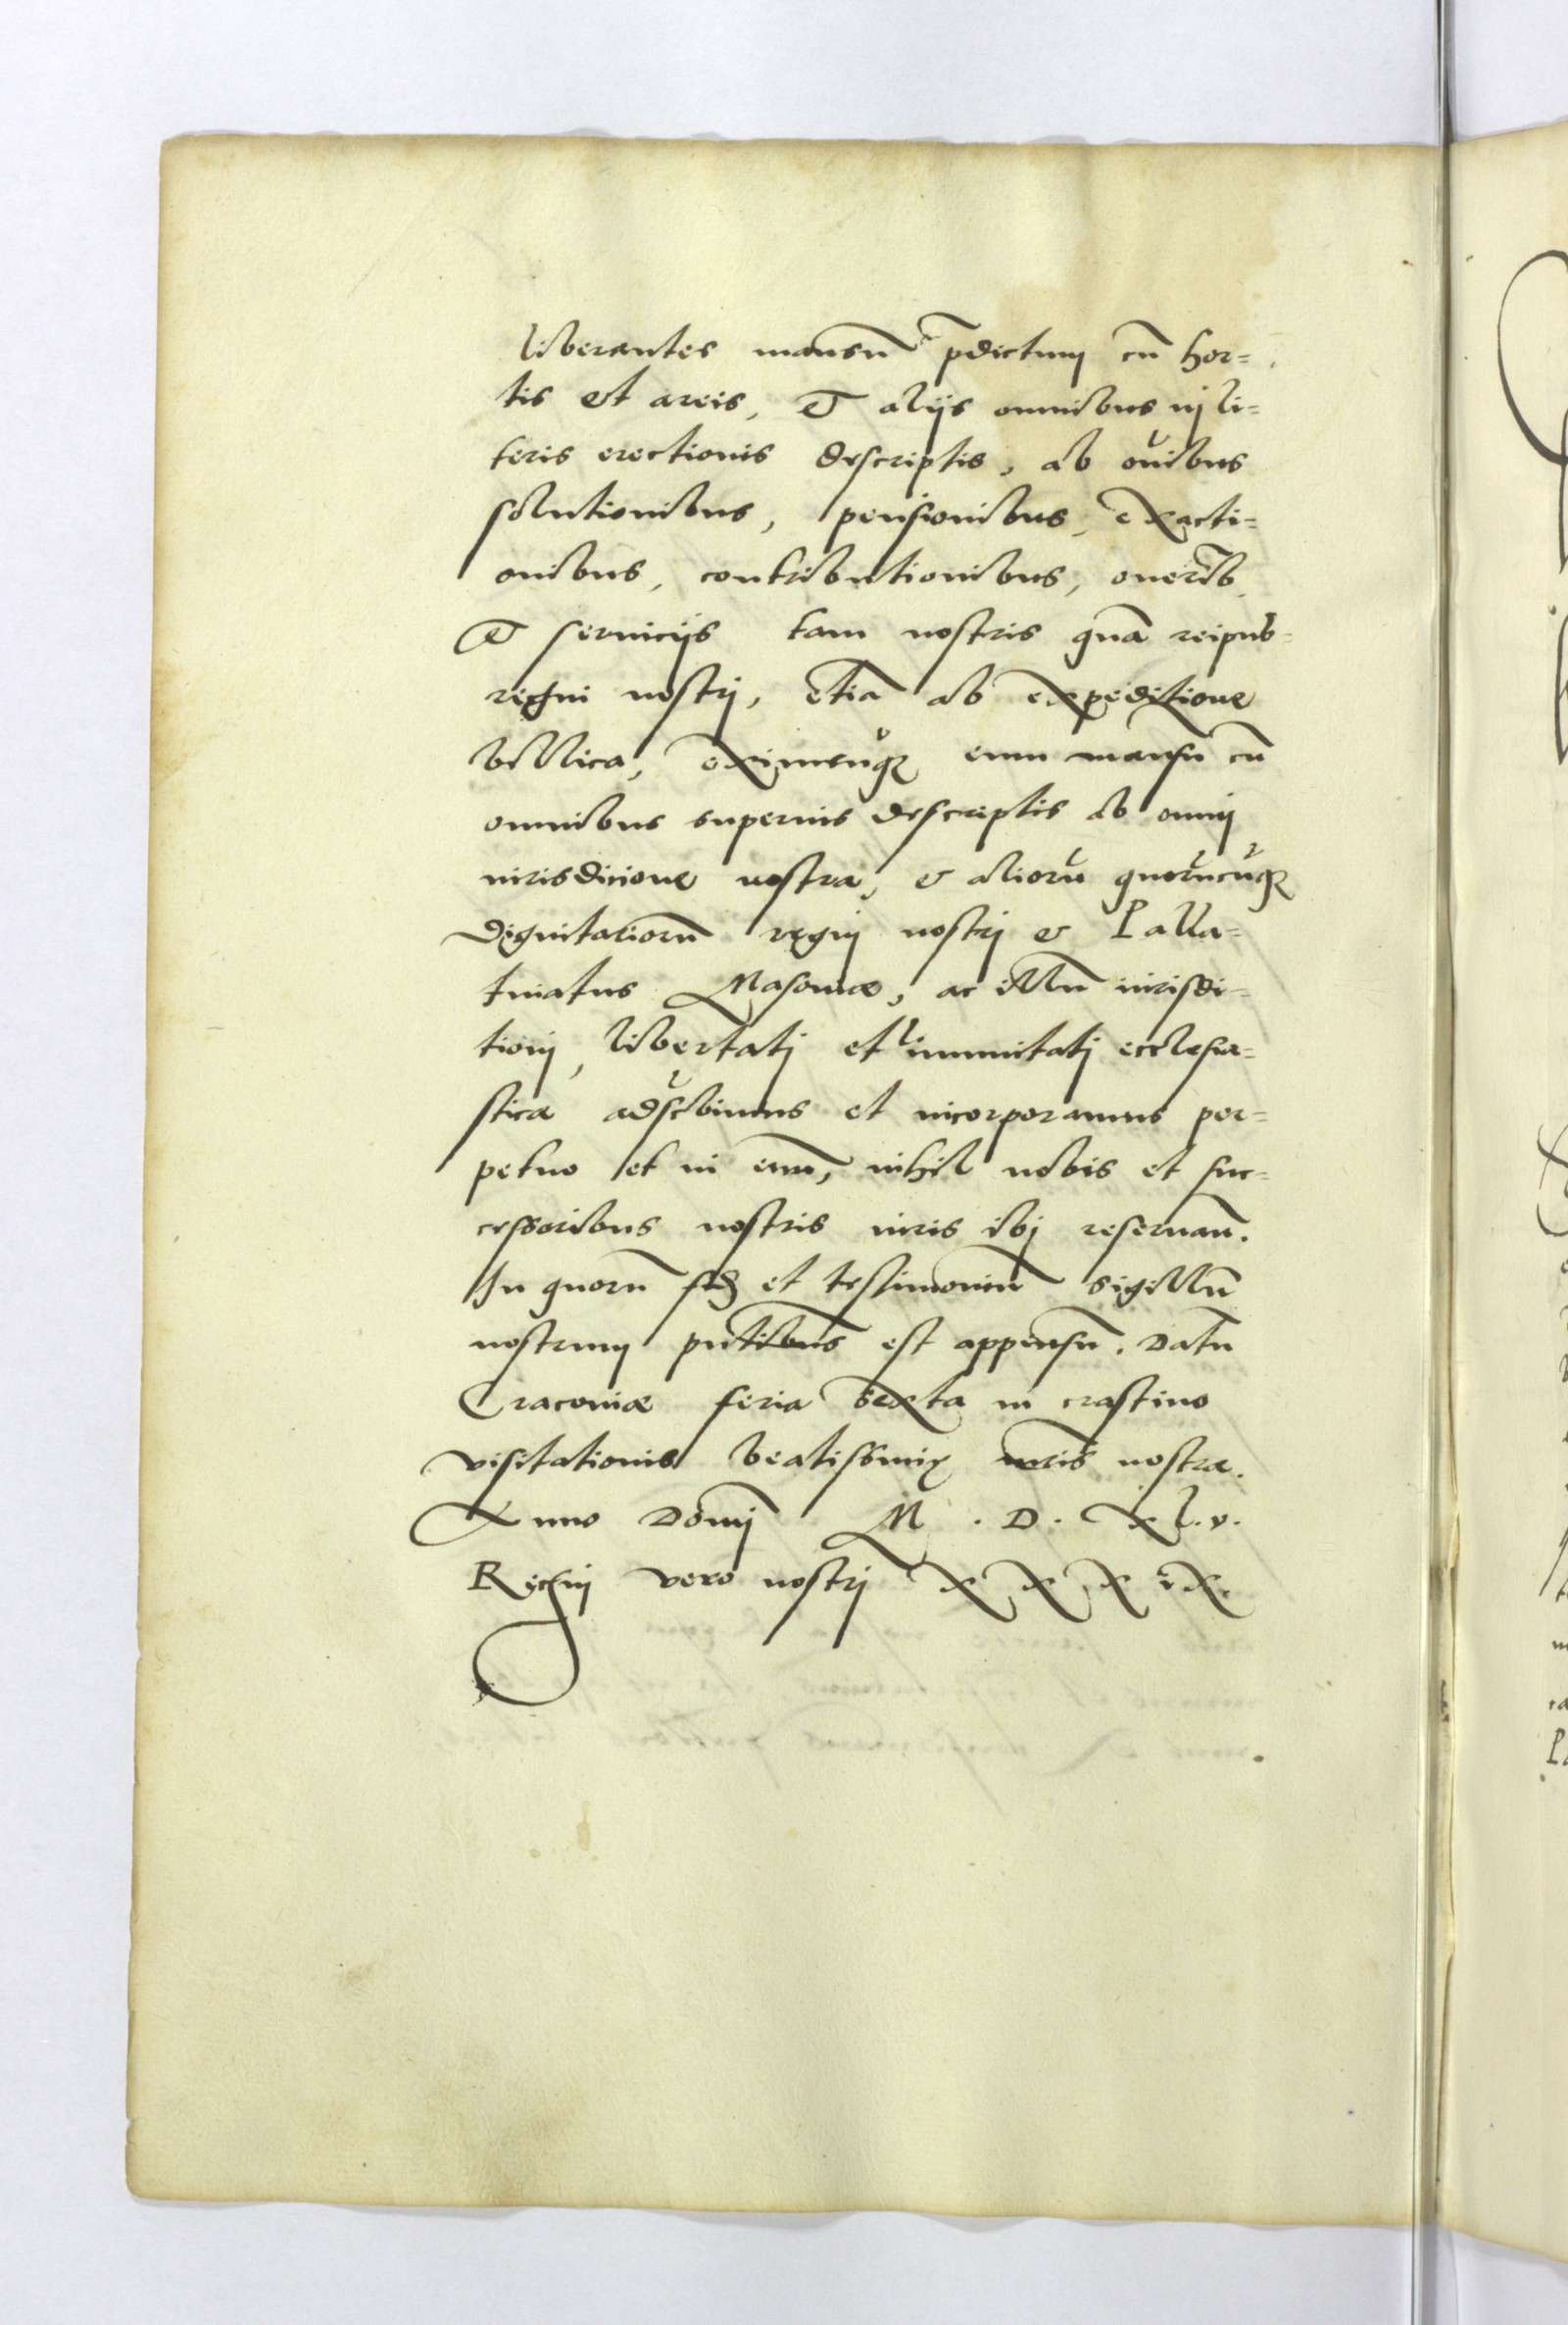 liberantes mansū p̄dictum cū hor=
tis et areis, Et alijs omnibus inj li=
teris erectionis descriptis, ab oībus
solutionibus, pensionibus, exacti=
onibus, contributionibus, onerib9
Et seruicijs tam nostris quā reipub=
regni nostrj, etiā ab expeditione
bellica, eximimusq₃ eum mansū cū
omnibus superius descriptis ab omnj
iurisdicione nostra, et aliorū quorūcūq₃
dignitariorū regnj nostrj et Palla=
tinatus Masoniæ, ac illū iurisdi=
tionj, libertatj et immunitatj ecclesia=
sticæ adscͥbimus et incorporamus per=
petuo et in euū, nihil nobis et suc=
cessoribus nostris iuris ibj reseruan̄.
In quorū fidē et testimoniū sigillū
nostrum pn̄tibus est appensū. Datū
Cracouiæ feria sexta in crastino
visitationis beatissimę mr̄is nostræ.
Anno Domj M . D . xl.v.
Regnj vero nostrj xxxix.